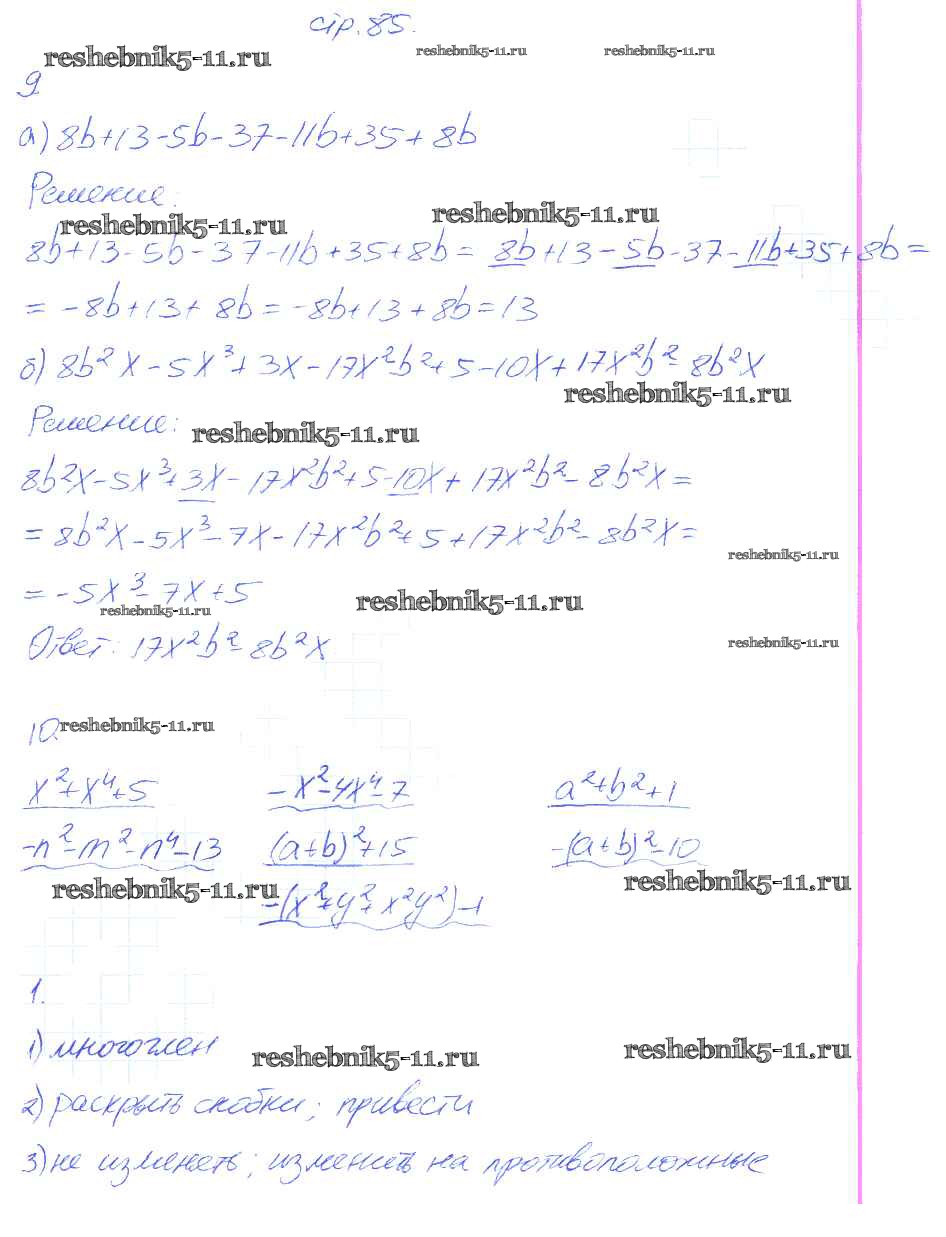 стр. 85.
reshebnik5-11.ru reshebnik5-11.ru reshebnik5-11.ru
9
а) 8b+13-5b-37-11b+35+8b
Решение:
reshebnik5-11.ru reshebnik5-11.ru
8b+13-5b-37-11b+35+8b= 8b+13-5b-37-11b+35+8b=
= -8b+13+8b=-8b+13+8b=13
б) 8b²x-5x³+3x-17x²b²+5-10x+17x²b²-8b²x
reshebnik5-11.ru
Решение: reshebnik5-11.ru
8b²x-5x³+3x-17x²b²+5-10x+17x²b²-8b²x=
= 8b²x-5x³-7x-17x²b²+5+17x²b²-8b²x=
reshebnik5-11.ru
= -5x³-7x+5
reshebnik5-11.ru reshebnik5-11.ru
Ответ: 17x²b²-8b²x reshebnik5-11.ru
10. reshebnik5-11.ru
x²+x⁴+5 -x²-4x⁴-7 a²+b²+1
-n²-m²-n⁴-13 (a+b)²+15 -(a+b)²-10
reshebnik5-11.ru reshebnik5-11.ru
-(x²+y²+x²y²)-1
1.
1) многочлен reshebnik5-11.ru reshebnik5-11.ru
2) раскрыть скобки; привести
3) не изменять; изменить на противоположные